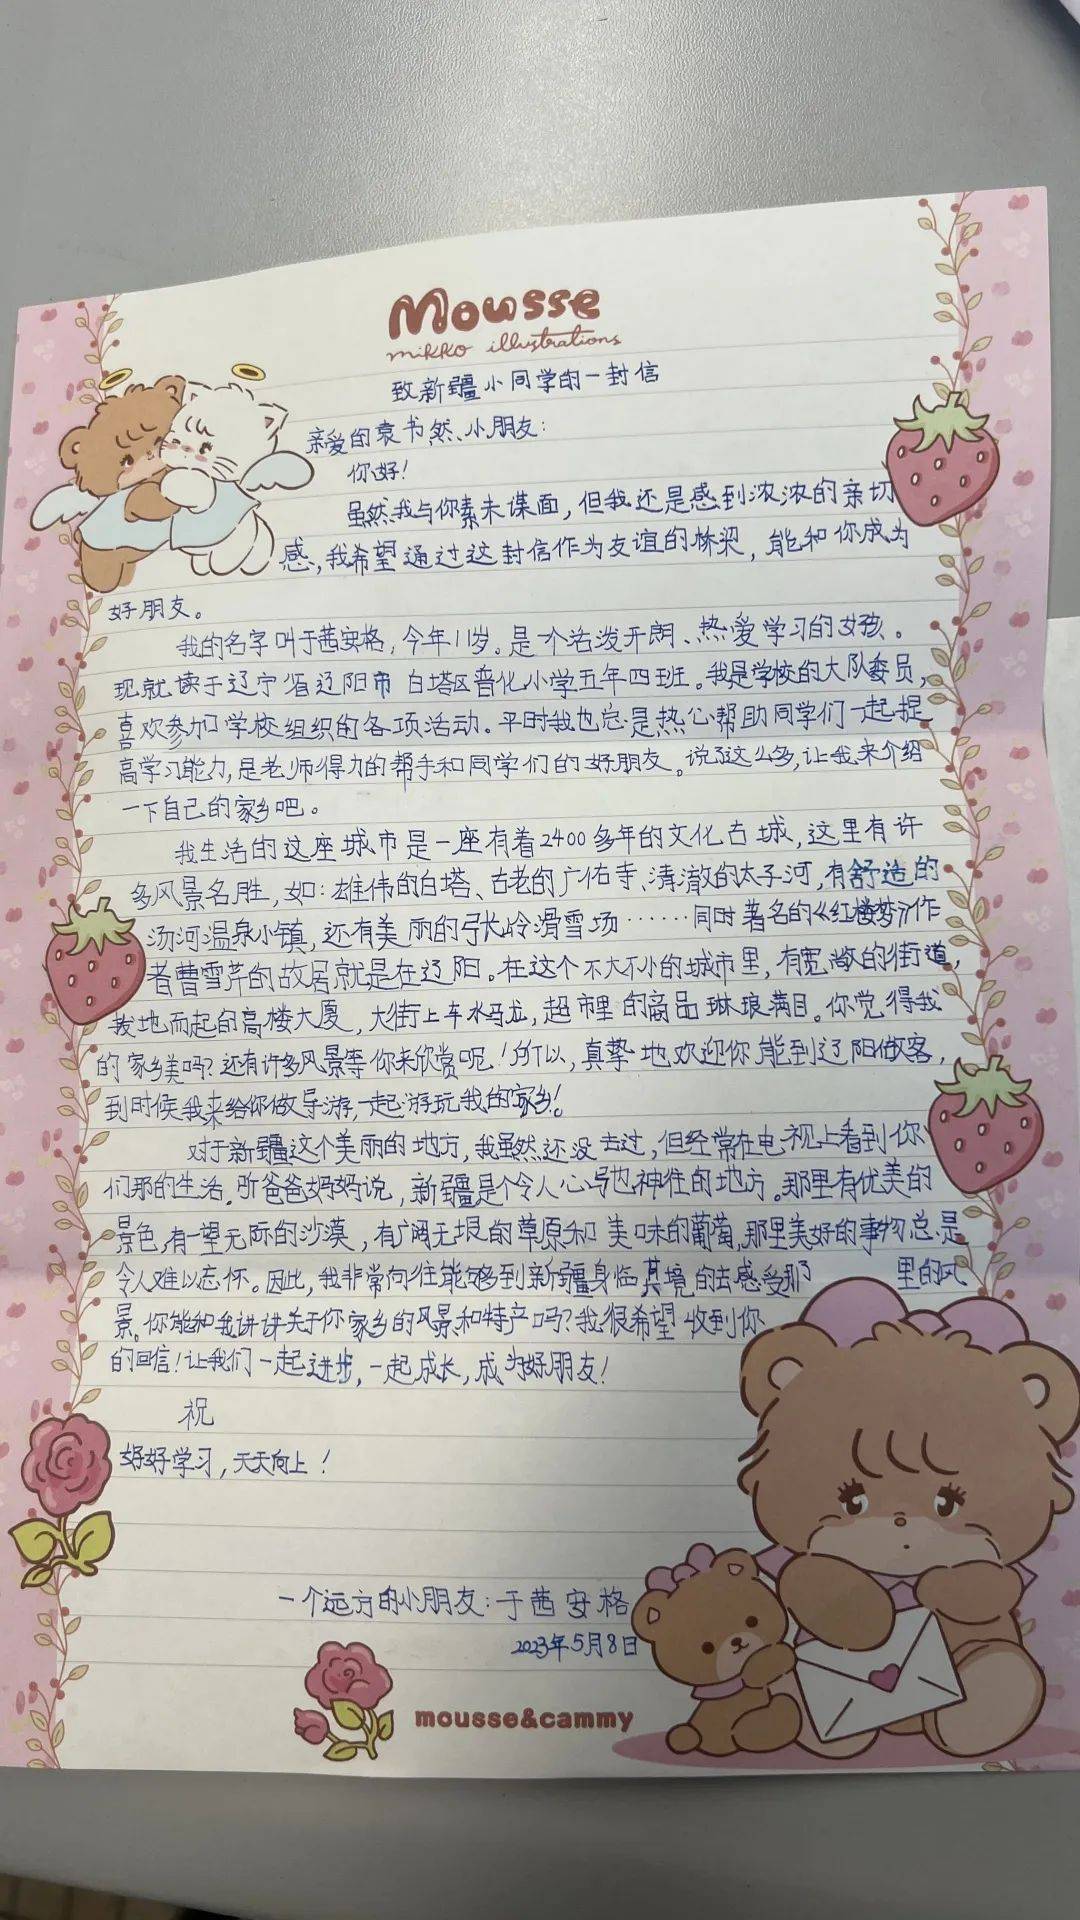 Mousse
mikko illustrations
致新疆小同学的一封信
亲爱的袁书然小朋友：
你好！
虽然我与你素未谋面，但我还是感到浓浓的亲切
感，我希望通过这封信作为友谊的桥梁，能和你成为
好朋友。
我的名字叫于茜安格，今年11岁。是一个活泼开朗、热爱学习的女孩。
现就读于辽宁省辽阳市白塔区普化小学五年四班。我是学校的大队委员，
喜欢参加学校组织的各项活动。平时我也总是热心帮助同学们一起提
高学习能力，是老师得力的帮手和同学们的好朋友。说了这么多，让我来介绍
一下自己的家乡吧。
我生活的这座城市是一座有着2400多年的文化古城，这里有许
多风景名胜，如：雄伟的白塔、古老的广佑寺、清澈的太子河，有舒适的
汤河温泉小镇，还有美丽的弓长岭滑雪场……同时著名的《红楼梦》作
者曹雪芹的故居就是在辽阳。在这个不大不小的城市里，有宽敞的街道，
拔地而起的高楼大厦，大街上车水马龙，超市里的商品琳琅满目。你觉得我
的家乡美吗？还有许多风景等你来欣赏呢！所以，真挚地欢迎你能到辽阳做客，
到时候我来给你做导游，一起游玩我的家乡！
对于新疆这个美丽的地方，我虽然还没去过，但经常在电视上看到你
们那的生活。听爸爸妈妈说，新疆是个令人心驰神往的地方。那里有优美的
景色，有一望无际的沙漠，有广阔无垠的草原和美味的葡萄，那里美好的事物总是
令人难以忘怀。因此，我非常向往能够到新疆身临其境的去感受那里的风
景。你能和我讲讲关于你家乡的风景和特产吗？我很希望收到你
的回信！让我们一起进步，一起成长，成为好朋友！
祝
好好学习，天天向上！
一个远方的小朋友：于茜安格
2023年5月8日
mousse&cammy